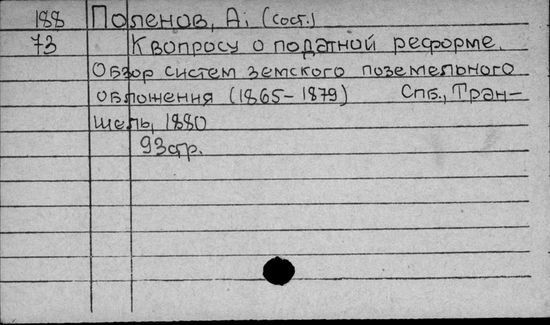 188 Поленов, А; (сост.)
73 К вопросу о податной реформе.
Обзор систем земского поземельного
обложения (1865-1879) Спб., Тран-
шель, 1880
93 стр.